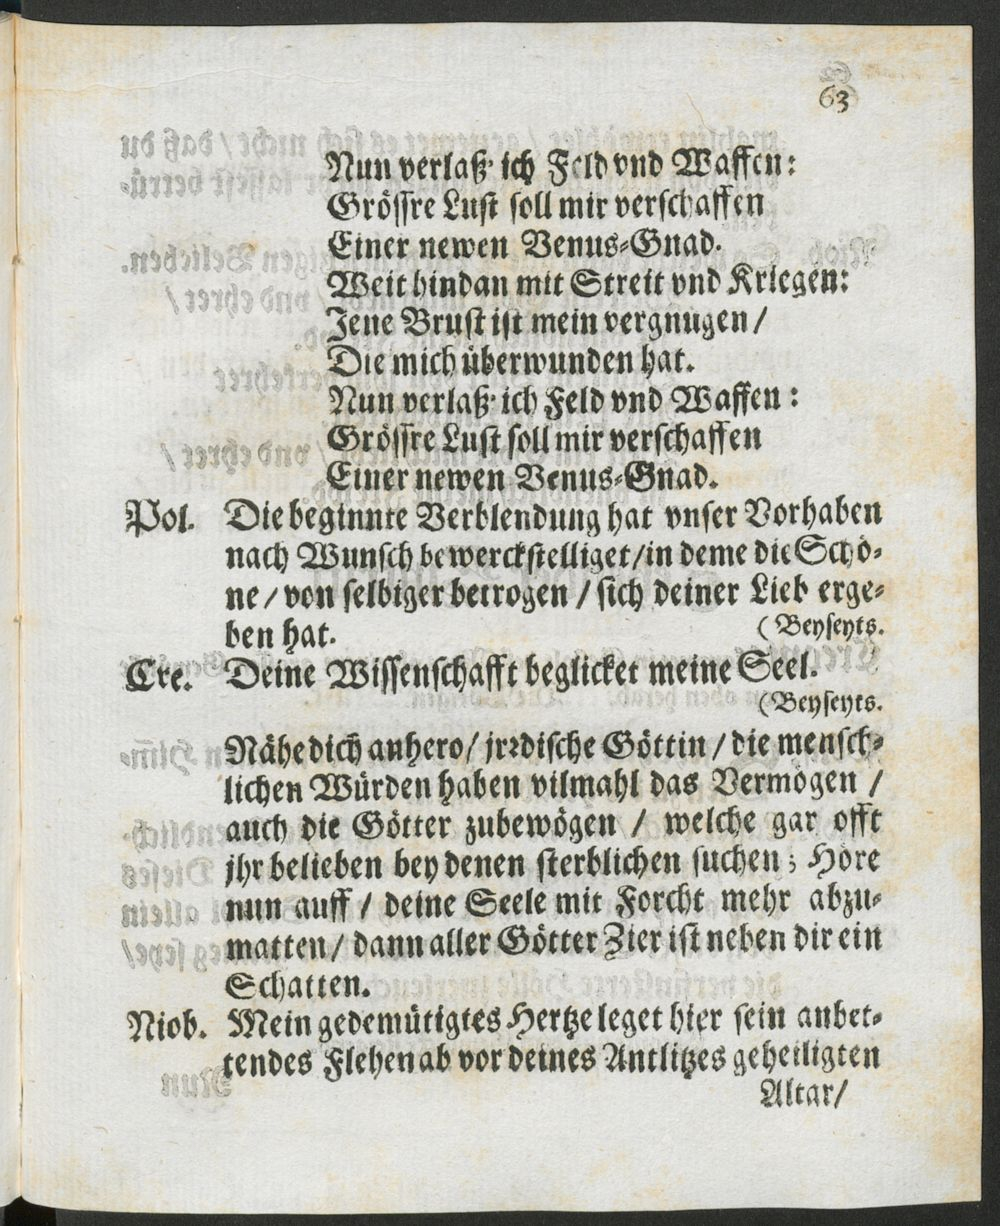 63
Nun verlaß ich Feld vnd Waffen:
Grössre Lust soll mir verschaffen
Einer newen Venus-Gnad.
Weit hindan mit Streit vnd Kriegen:
Jene Brust ist mein vergnugen /
Die mich überwunden hat.
Nun verlaß ich Feld vnd Waffen :
Grössre Lust soll mir verschaffen
Einer newen Venus-Gnad.
Pol. Die beginnte Verblendung hat vnser Vorhaben
nach Wunsch bewerckstelliget / in deme die Schö-
ne / von selbiger betrogen / sich deiner Lieb erge-
ben hat. ( Beyseyts.
Cre. Deine Wissenschafft beglicket meine Seel.
(Beyseyts.
Nähe dich anhero / jrrdische Göttin / die mensch-
lichen Würden haben vilmahl das Vermögen /
auch die Götter zubewögen / welche gar offt
jhr belieben bey denen sterblichen suchen ; Höre
nun auff / deine Seele mit Forcht mehr abzu-
matten / dann aller Götter Zier ist neben dir ein
Schatten.
Niob. Mein gedemütigtes Hertze leget hier sein anbet-
tendes Flehen ab vor deines Antlitzes geheiligten
Altar /